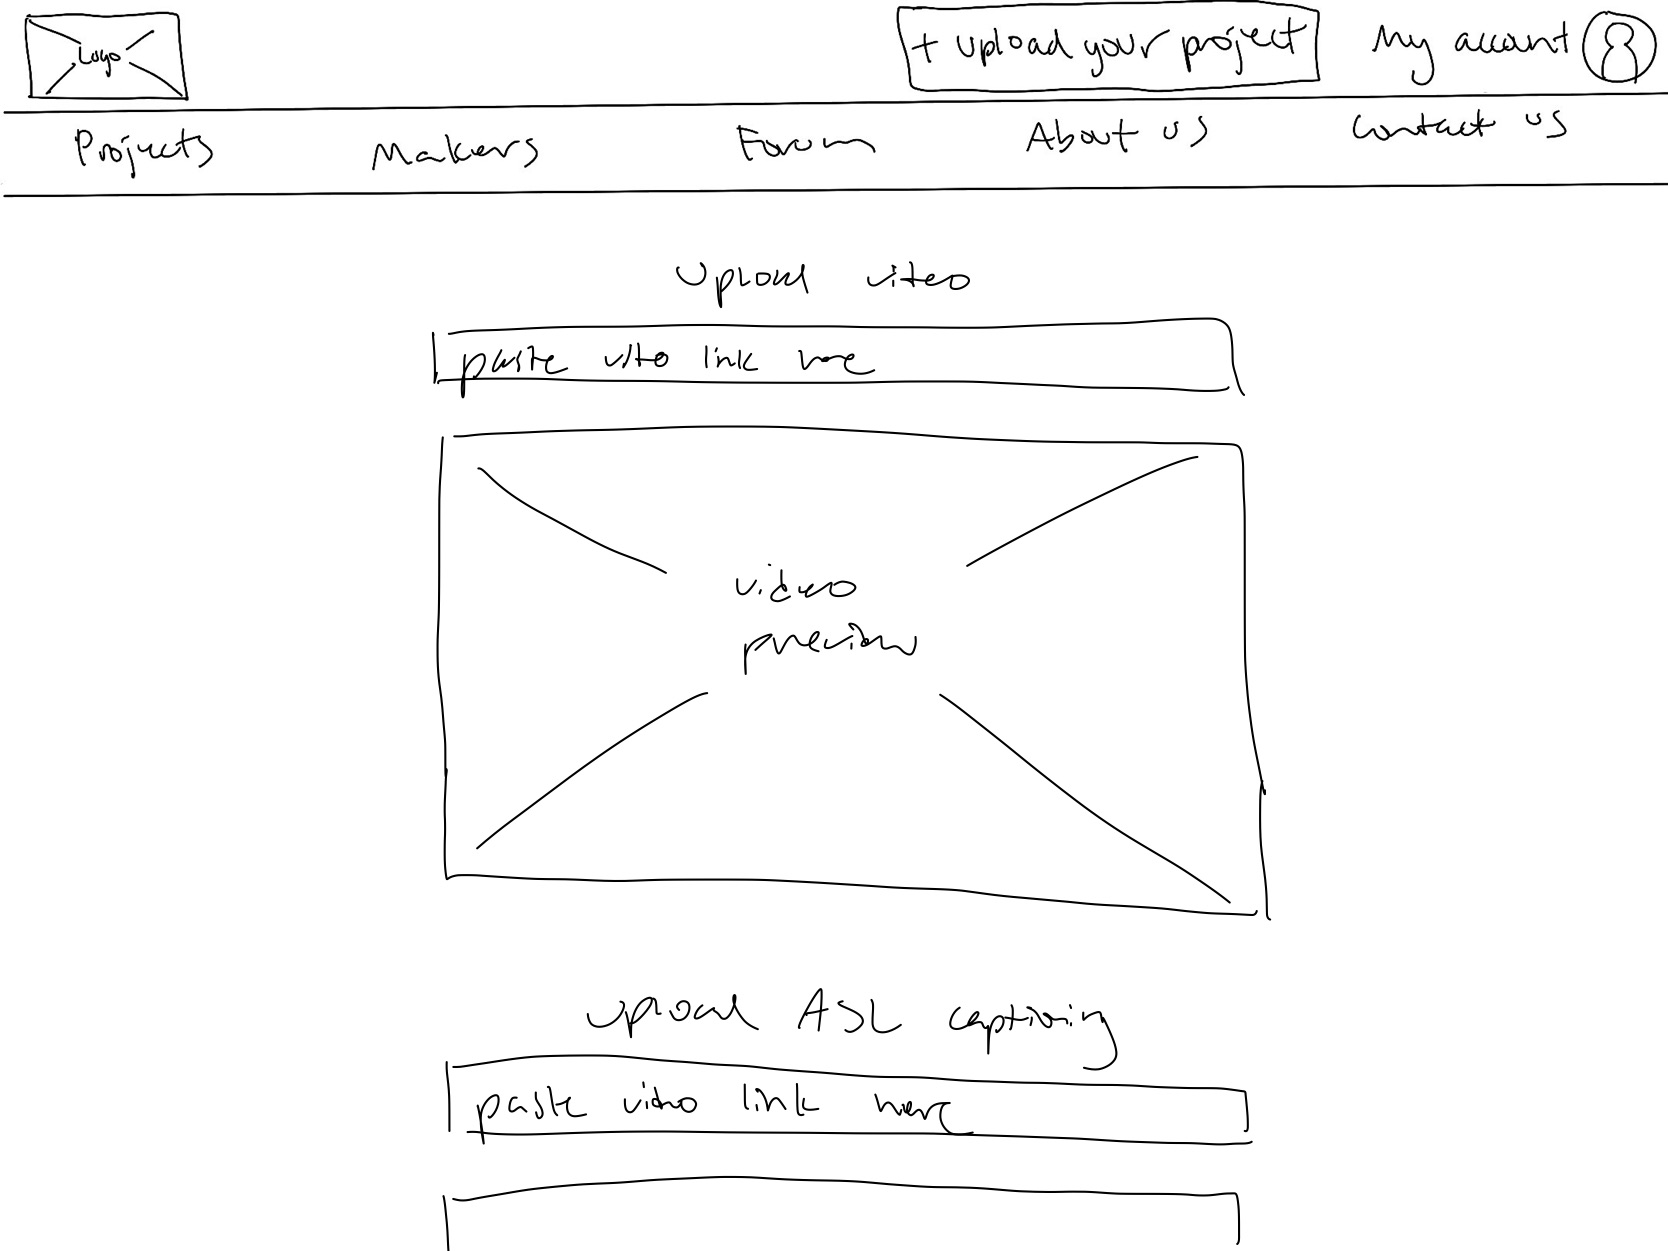 Logo
+ upload your project
My account
Projects
Makers
Forum
About us
Contact us
Upload video
paste video link here
video
preview
upload ASL captioning
paste video link here